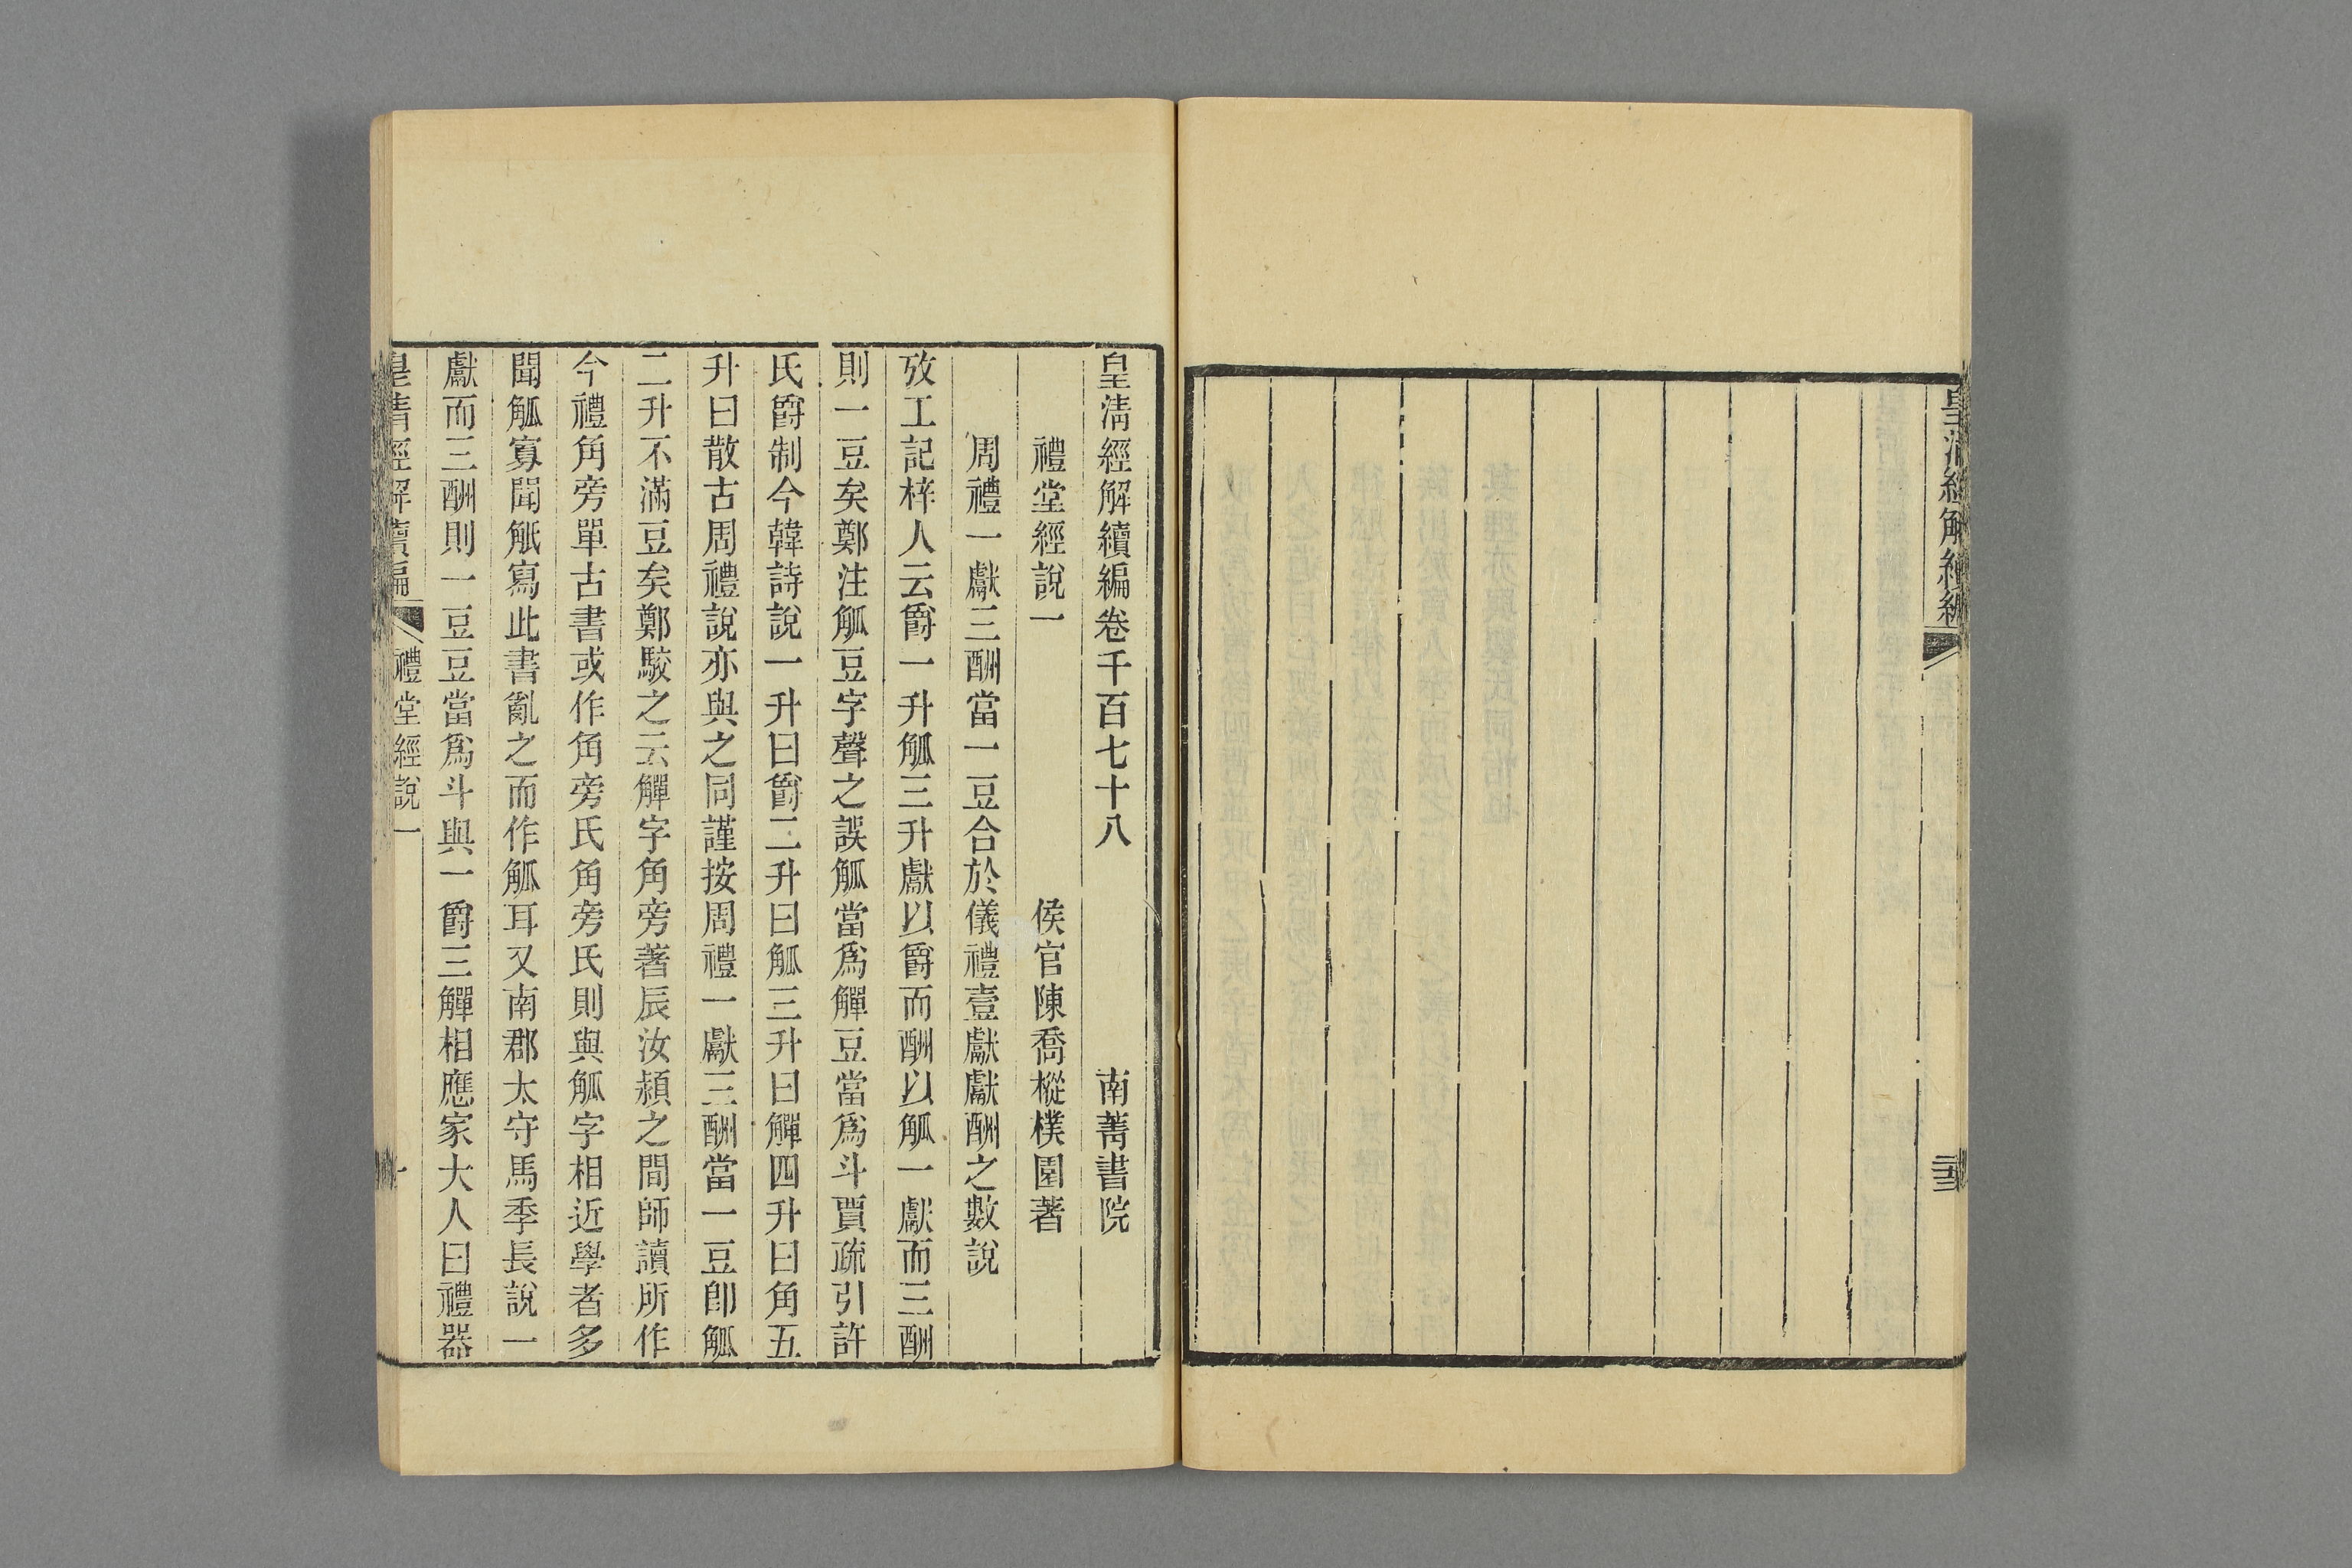 皇清經解續編
三五
皇淸經解續編卷千百七十八　南菁書院
禮堂經說一　侯官陳喬樅樸園著
周禮一獻三酬當一豆合於儀禮壹獻獻酬之數說
攷工記梓人云爵一升觚三升獻以爵而酬以觚一獻而三酬
則一豆矣鄭注觚豆字聲之誤觚當爲觶豆當爲斗賈疏引許
氏爵制今韓詩說一升曰爵二升曰觚三升曰觶四升曰角五
升曰散古周禮說亦與之同謹按周禮一獻三酬當一豆卽觚
二升不滿豆矣鄭駮之云觶字角旁著辰汝潁之間師讀所作
今禮角旁單古書或作角旁氏角旁氏則與觚字相近學者多
聞觚寡聞觗寫此書亂之而作觚耳又南郡太守馬季長說一
獻而三酬則一豆豆當爲斗與一爵三觶相應家大人曰禮器
皇清經解續編　禮堂經說一　一